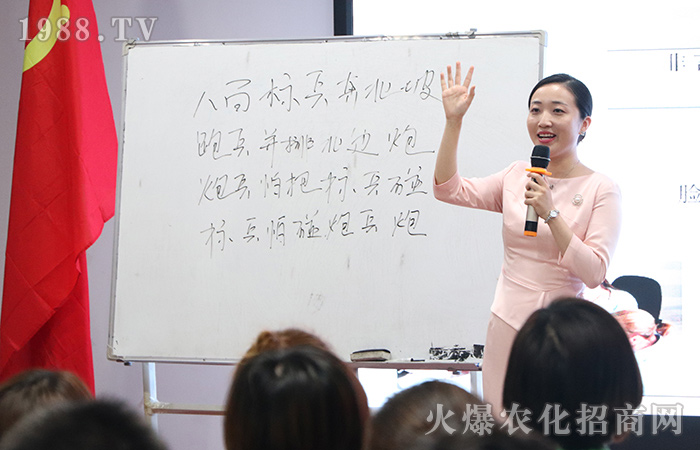 1988.TV
八百标兵奔北坡
跑兵并排北边炮
炮兵怕把标兵碰
标兵怕碰炮兵炮
火爆农化招商网